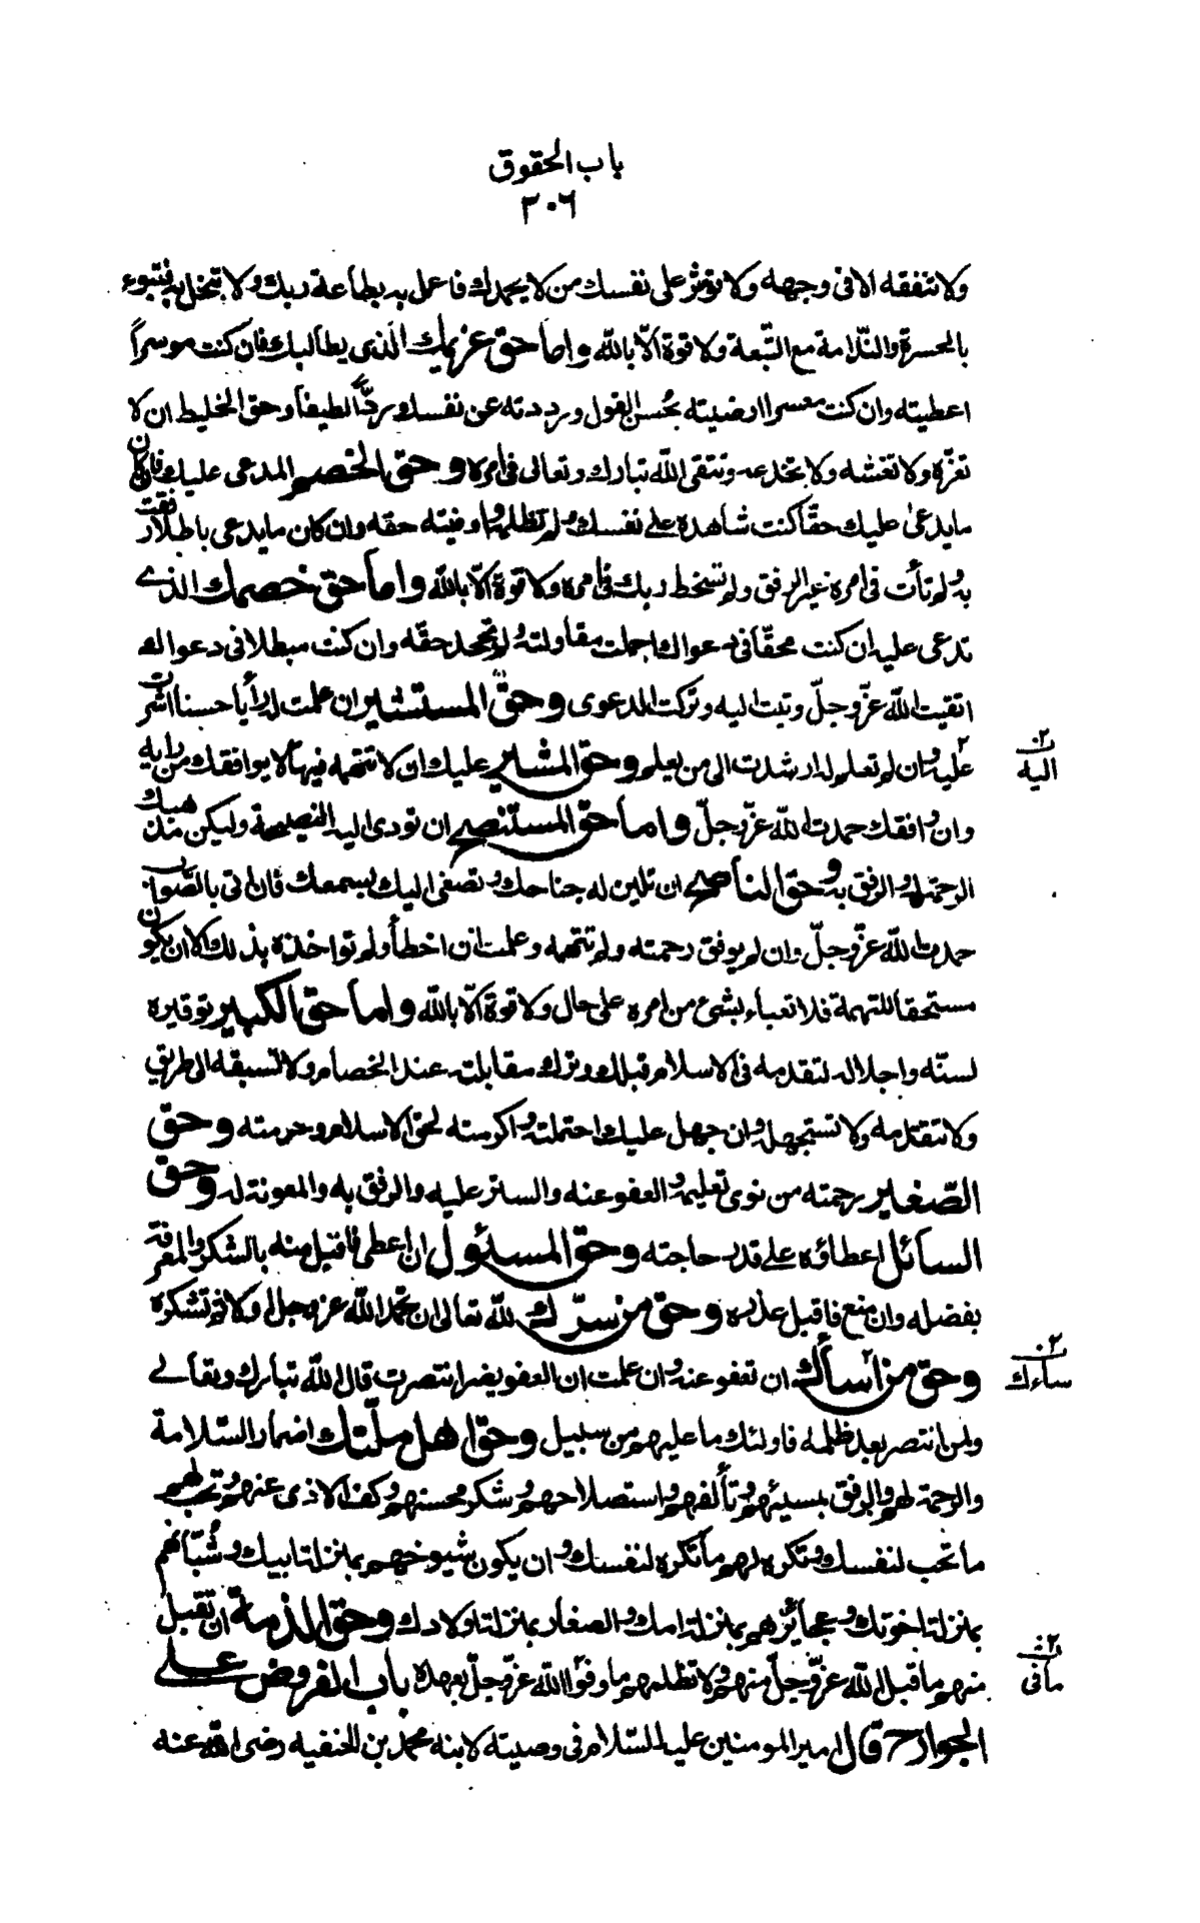 باب الحقوق
٣٠٦
ولا تنفقه الا فى وجهه ولا تؤثر على نفسك من لا يحمدك فاعمل به بطاعة ربك ولا تبخل به فتبوء
بالحسرة والندامة مع التّبعة ولا قوة الّا باللّه واما حق غريمك الذى يطالبك فان كنت موسراً
اعطيته وان كنت معسرا ارضيته بحُسن القول ورددته عن نفسك ردّاً لطيفا وحق الخليط ان لا
تغرّه ولا تغشه ولا تخدعه وتتقى اللّه تبارك وتعالى فى امره وحق الخصم المدعى عليك فان كان
ما يدعى عليك حقّا كنت شاهده على نفسك ولم تظلمه واوفيته حقه وان كان ما يدعى باطلا رفقت
به ولم تأت فى امره غير الرفق ولم تسخط ربك فى امره ولا قوة الّا باللّه واما حق خصمك الذے
تدعى عليه ان كنت محقّا فى دعواك اجملت مقاولته ولم تجحد حقّه وان كنت مبطلا فى دعواك
اتقيت اللّه عزّوجلّ وتبت اليه وتركت الدعوى وحقّ المستشير ان علمت له رأيا حسنا اشرت
عليه وان لم تعلم له ارشدت الى من يعلم وحق المشير عليك ان لا تتهمه فيما لا يوافقك من رايه
٢ن
اليه
وان وافقك حمدت اللّه عزّوجلّ واما حق المستنصح ان تودى اليه النصيحة وليكن مذهبك
الرحمة له والرفق به وحق الناصح ان تلين له جناحك وتصغى اليك بسمعك فان اتى بالصّواب
حمدت اللّه عزّوجلّ وان لم يوفق رحمته ولم تتهمه وعلمت ان اخطأ ولم تواخذه بذلك الا ان يكون
مستحقا للتهمة فلا تعباء بشئ من امره على حال ولا قوة الّا باللّه واما حق الكبير توقيره
لسنّه واجلاله لتقدمه فى الاسلام قبلك وترك مقابلته عند الخصام ولا تسبقه الى طريق
ولا تتقدمه ولا تستجهله وان جهل عليك احتملته واكرمته لحق الاسلام وحرمته وحق
الصّغير رحمته من نوى تعليمه والعفو عنه والستر عليه والرفق به والمعونة له وحق
السائل اعطاؤه على قدر حاجته وحق المسئول ان اعطى فاقبل منه بالشكر والمعرفة
بفضله وان منع فاقبل عذره وحق من سرّك للّه تعالى ان تحمد اللّه عزوجل اولا ثم تشكره
وحق من أسأك ان تعفو عنه وان علمت ان العفو يضر انتصرت قال اللّه تبارك وتعالے
٢ن
ساءك
ولمن انتصر بعد ظلمه فاولئك ما عليهم من سبيل وحق اهل ملّتك اضمار السّلامة
والرحمة لهم والرفق بمسيئهم وتألفهم واستصلاحهم وشكر محسنهم وكف الاذى عنهم وتحب لهم
ما تحب لنفسك وتكره لهم ما تكره لنفسك وان يكون شيوخهم بمنزلة ابيك وشُبّانهم
بمنزلة اخوتك وعجائزهم بمنزلة امك والصغار بمنزلة اولادك وحق الذمة ان تقبل
منهم ما قبل اللّه عزّوجلّ منهم ولا تظلمهم ما وفوا اللّه عزّوجلّ بعهده باب الفروض علے
٢ن
مافى
الجوارح قال امير المومنين عليه السّلام فى وصيته لابنه محمد بن الحنفيه رضى اللّه عنه